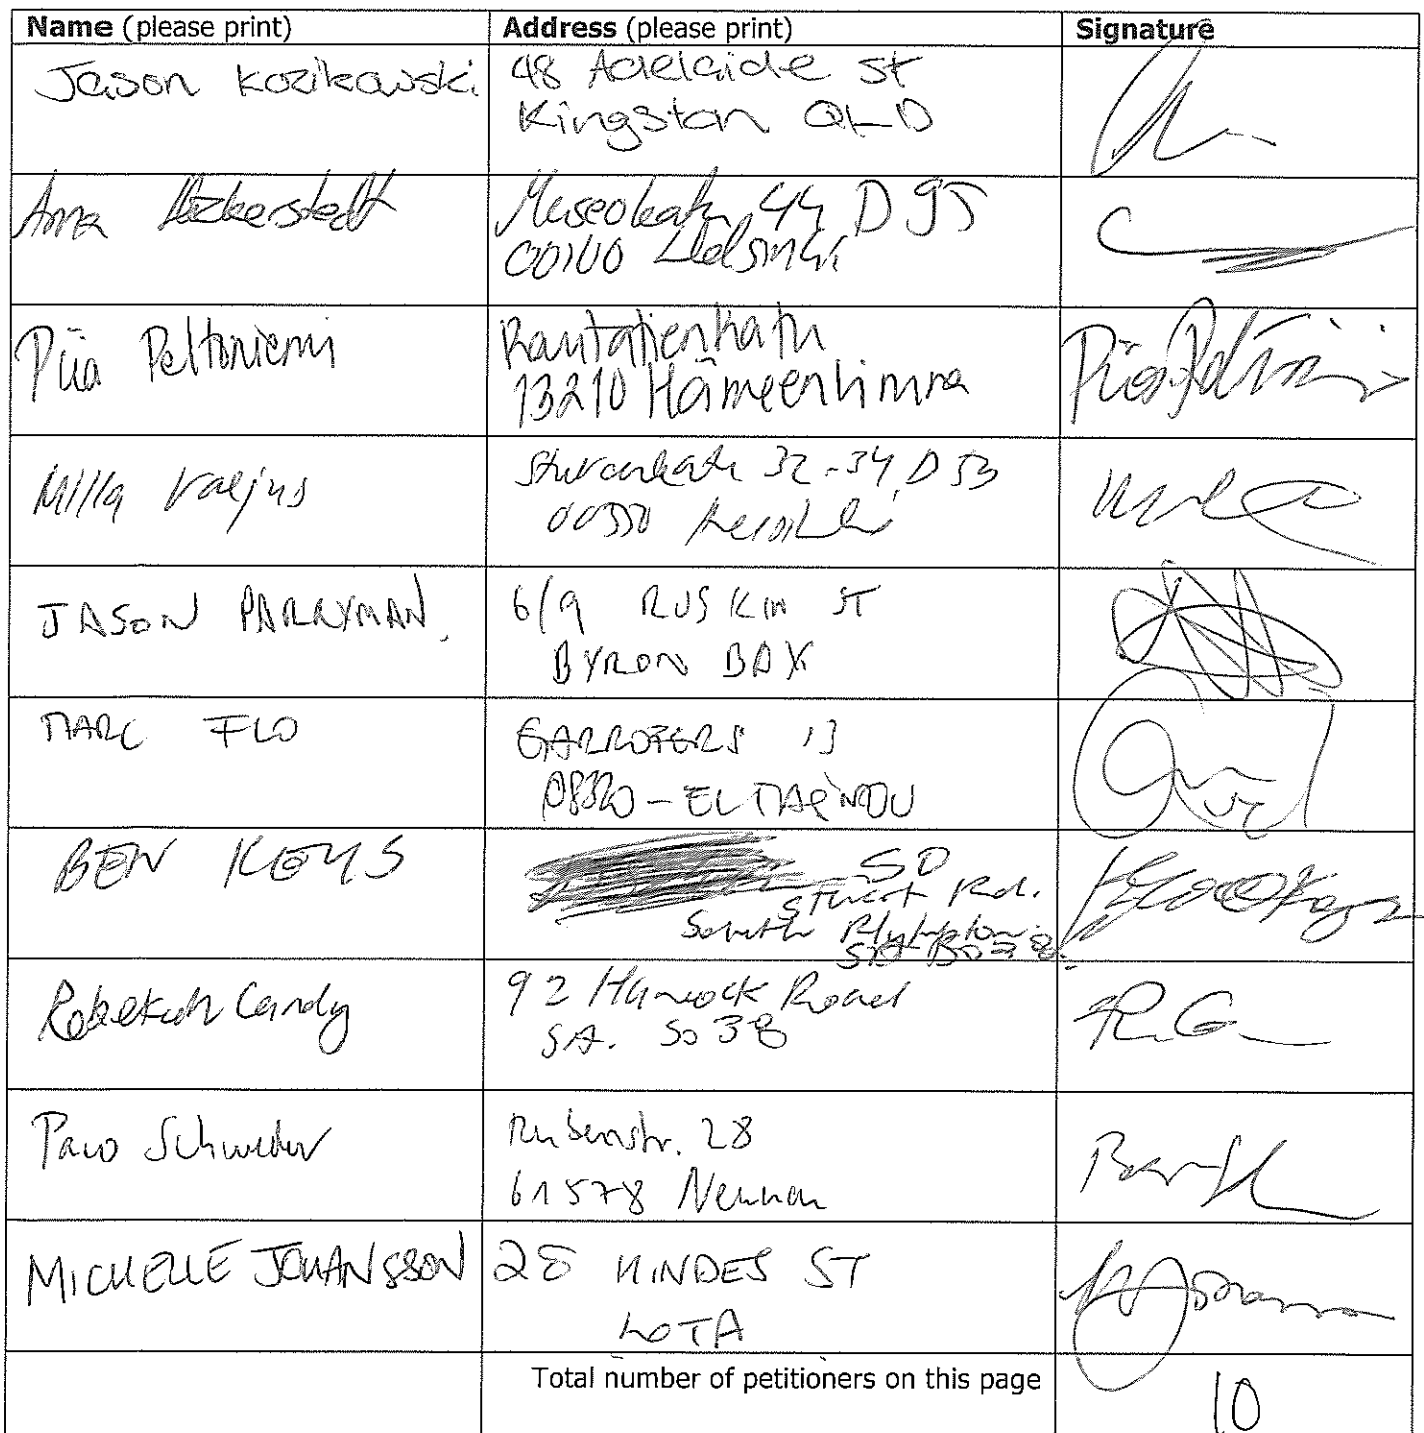 Name (please print) Address (please print) Signature
Jason Kozikowski 48 Adelaide St
Kingston QLD
Anna 44 D 95
00100 Helsinki
Piia Peltoniemi Rautatienkatu
13210 Hämeenlinna
Milla Valjus Sturenkatu 32-34 D 53
JASON PARRYMAN. 6/9 RUSKIN ST
BYRON BAY
MARC FLO GARROFERS 13
08320 - EL MASNOU
BEN KEYS 50
Street Rd.
South Plympton
Rebekah Candy 92 Hancock Road
SA. 5038
Schweber Rubenstr. 28
61578
MICHELLE JOHANSSON 28 HINDES ST
LOTA
Total number of petitioners on this page 10